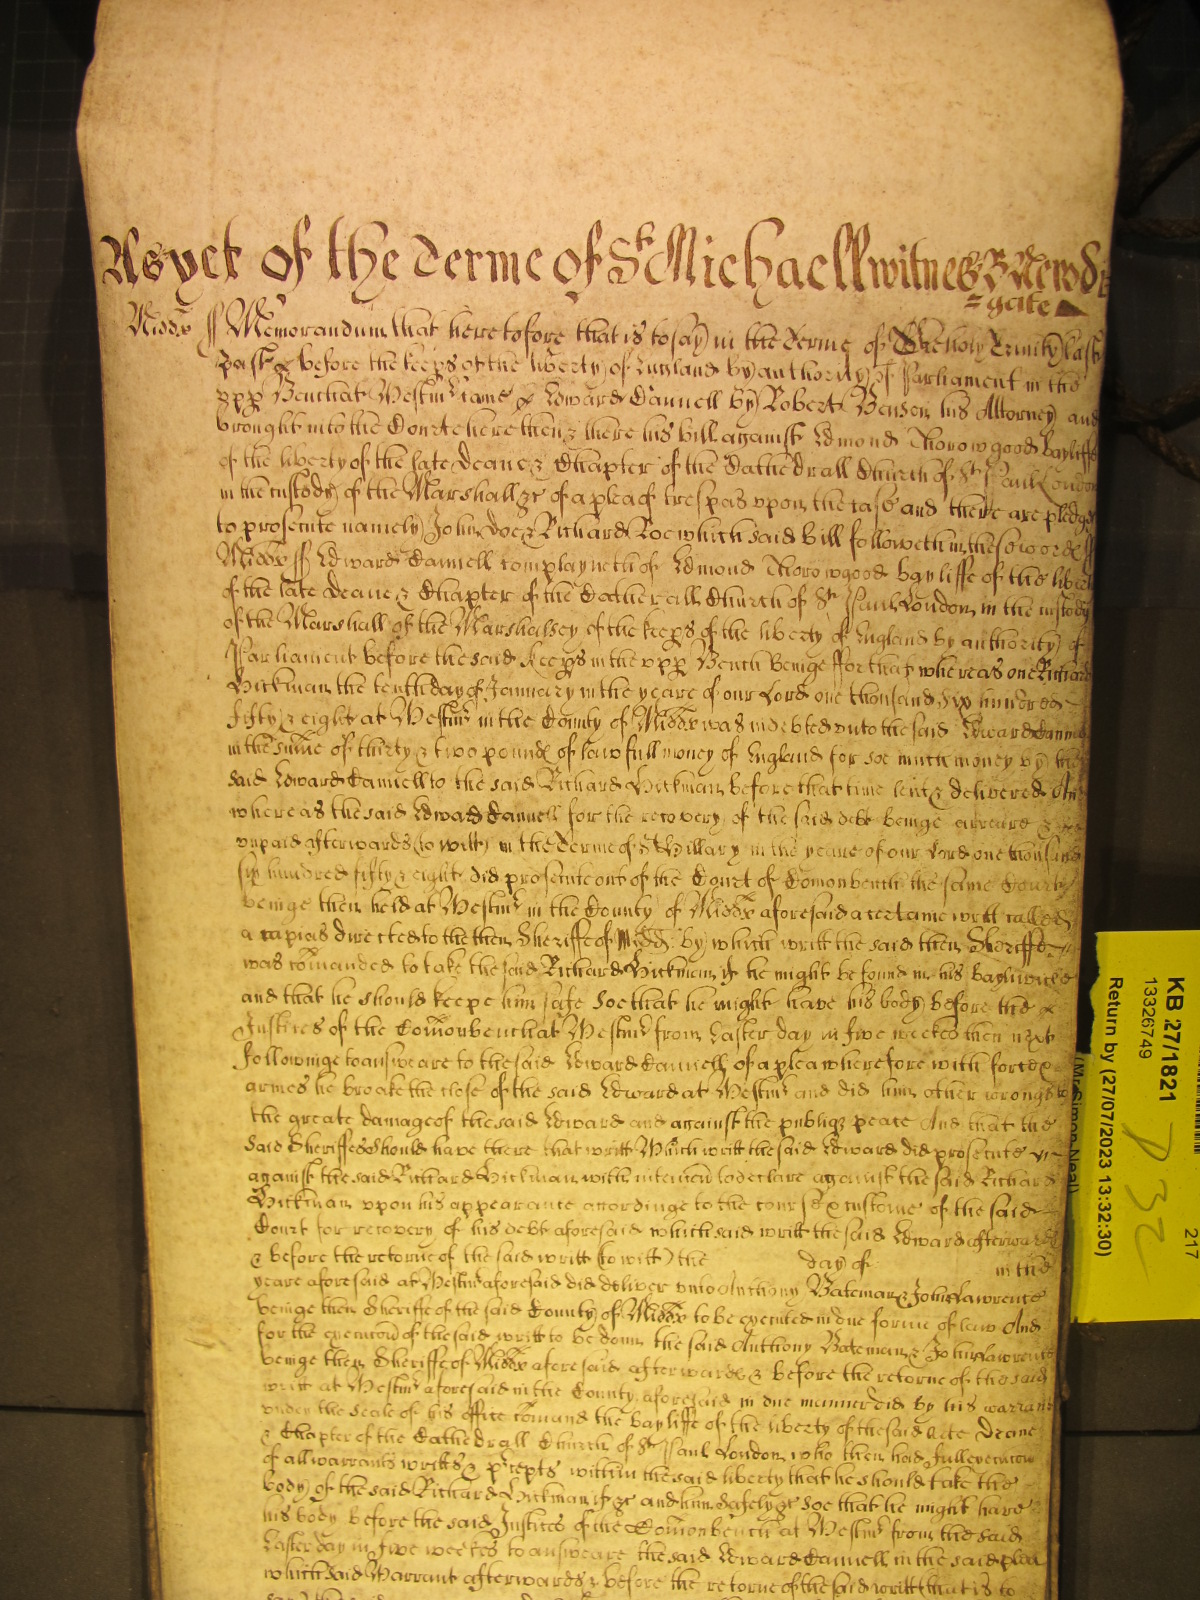 As yet of the Terme of St Michaell witnes R Newdi
=gate
Middx ss Memorandum that heretofore that is to say in the Terme of The holy Trinity last
past before the keeps of the liberty of England by authority of Parliament in the
upp Bench at Westmr came Edward Cannell by Robert Benson his Attorney and
brought into the Courte here then & there his bill against Edmond Thorowgood Bayliffe
of the liberty of the late Deane & Chapter of the Cathedrall Church of St Paul London
in the custody of the Marshall &c of a plea of trespas upon the case and there are pledges
to prosecute namely John Doe & Richard Roe which said bill followeth in these words ss
Middx ss Edward Cannell complayneth of Edmond Thorowgood bayliffe of the libertie
of the late Deane & Chapter of the Cathedrall Church of St Paul London in the custody
of the Marshall of the Marshalsey of the keeps of the liberty of England by authority of
Parliament before the said keeps in the upp Bench beinge ffor that whereas one Richard
Hickman the tenth day of January in the yeare of our Lord one thousand six hundred
fifty & eight at Westmr in the County of Middx was indebted unto the said Edward Cannell
in the sume of thirty & two pounds of lawfull money of England for soe much money by the
said Edward Cannell to the said Richard Hickman before that time lent & delivered And
whereas the said Edward Cannell for the recovery of the said debt beinge arreare &
unpaid afterwards (to witt) in the Terme of St Hillary in the yeare of our Lord one thousand
six hundred fifty & eight did prosecute out of the Court of Comon bench the same Court
beinge then held at Westmr in the County of Middx aforesaid a certaine writt called
a capias directed to the then Sheriffe of Middx by which writt the said then Sheriffe
was comanded to take the said Richard Hickman if he might be found in his bayliwicke
and that he should keepe him safe soe that he might have his body before the
Justices of the Comon bench at Westmr from Easter day in five weekes then next
followinge to answeare to the said Edward Cannell of a plea wherefore with force &
armes he broake the close of the said Edward at Westmr and did him other wrongs to
the greate damage of the said Edward and against the publiq peace And that the
said Sheriffe should have there that writt Which writt the said Edward did prosecute
against the said Richard Hickman with intencon to declare against the said Richard
Hickman upon his appearance accordinge to the course & custome of the said
Court for recovery of his debt aforesaid which said writt the said Edward afterwards
& before the retorne of the said writt (to witt) the day of in the
yeare aforesaid at Westmr aforesaid did deliver unto Anthony Bateman & John Lawrence
beinge then Sheriffe of the said County of Middx to be executed in due forme of law And
for the execucon of the said writt to be donn the said Anthony Bateman & John Lawrence
beinge then Sheriffe of Middx aforesaid afterwards & before the retorne of the said
writt at Westmr aforesaid in the County aforesaid in due manner did by his warrant
under the seale of his office comand the bayliffe of the liberty of the said late Deane
& Chapter of the Cathedrall Church of St Paul London who then had full execucon
of all warrants writts & precepts within the said liberty that he should take the
body of the said Richard Hickman if &c and him safely &c soe that he might have
his body before the said Justices of the Comon bench at Westmr from the said
Easter day in five weekes to answeare the said Edward Cannell in the said plea
which said Warrant afterwards & before the retorne of the said writt (that is to
KB 27/1821
13326749
Return by (27/07/2023 13:32:30)
(Mr Simon Neal)
217
D 32